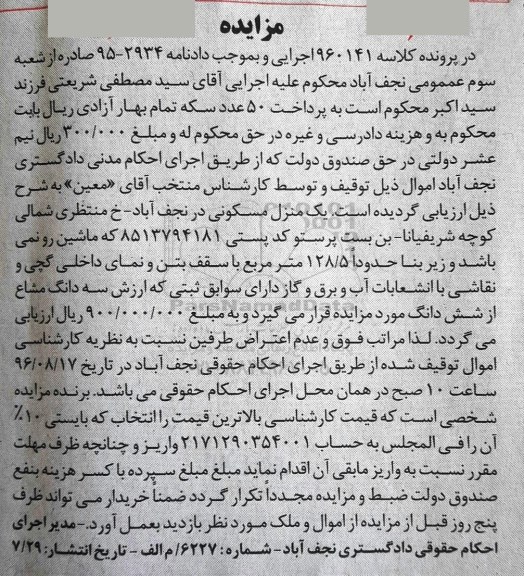 مزایده
در پرونده کلاسه ۹۶۰۱۴۱ اجرایی و بموجب دادنامه ۲۹۳۴-۹۵ صادره از شعبه
سوم عممومی نجف آباد محکوم علیه اجرایی آقای سید مصطفی شریعتی فرزند
سید اکبر محکوم است به پرداخت ۵۰ عدد سکه تمام بهار آزادی ریال بابت
محکوم به و هزینه دادرسی و غیره در حق محکوم له و مبلغ ۳۰۰/۰۰۰ ریال نیم
عشر دولتی در حق صندوق دولت که از طریق اجرای احکام مدنی دادگستری
نجف آباد اموال ذیل توقیف و توسط کارشناس منتخب آقای «معین» به شرح
ذیل ارزیابی گردیده است، یک منزل مسکونی در نجف آباد-خ منتظری شمالی
کوچه شریفیانا- بن بست پرستو کد پستی ۸۵۱۳۷۹۴۱۸۱ که ماشین رو نمی
باشد و زیر بنا حدوداً ۱۲۸/۵ متر مربع با سقف بتن و نمای داخلی گچی و
نقاشی با انشعابات آب و برق و گاز دارای سوابق ثبتی که ارزش سه دانگ مشاع
از شش دانگ مورد مزایده قرار می گیرد و به مبلغ ۹۰۰/۰۰۰/۰۰۰ ریال ارزیابی
می گردد. لذا مراتب فوق و عدم اعتراض طرفین نسبت به نظریه کارشناسی
اموال توقیف شده از طریق اجرای احکام حقوقی نجف آباد در تاریخ ۹۶/۰۸/۱۷
ساعت ۱۰ صبح در همان محل اجرای احکام حقوقی می باشد. برنده مزایده
شخصی است که قیمت کارشناسی بالاترین قیمت را انتخاب که بایستی ۱۰٪
آن را فی المجلس به حساب ۲۱۷۱۲۹۰۳۵۴۰۰۱ واریز و چنانچه ظرف مهلت
مقرر نسبت به واریز مابقی آن اقدام نماید مبلغ مبلغ سپرده با کسر هزینه بنفع
صندوق دولت ضبط و مزایده مجدداً تکرار گردد ضمناً خریدار می تواند ظرف
پنج روز قبل از مزایده از اموال و ملک مورد نظر بازدید بعمل آورد.-مدیر اجرای
احکام حقوقی دادگستری نجف آباد- شماره: ۶۲۲۷/م الف - تاریخ انتشار: ۷/۲۹
ParsNamadData